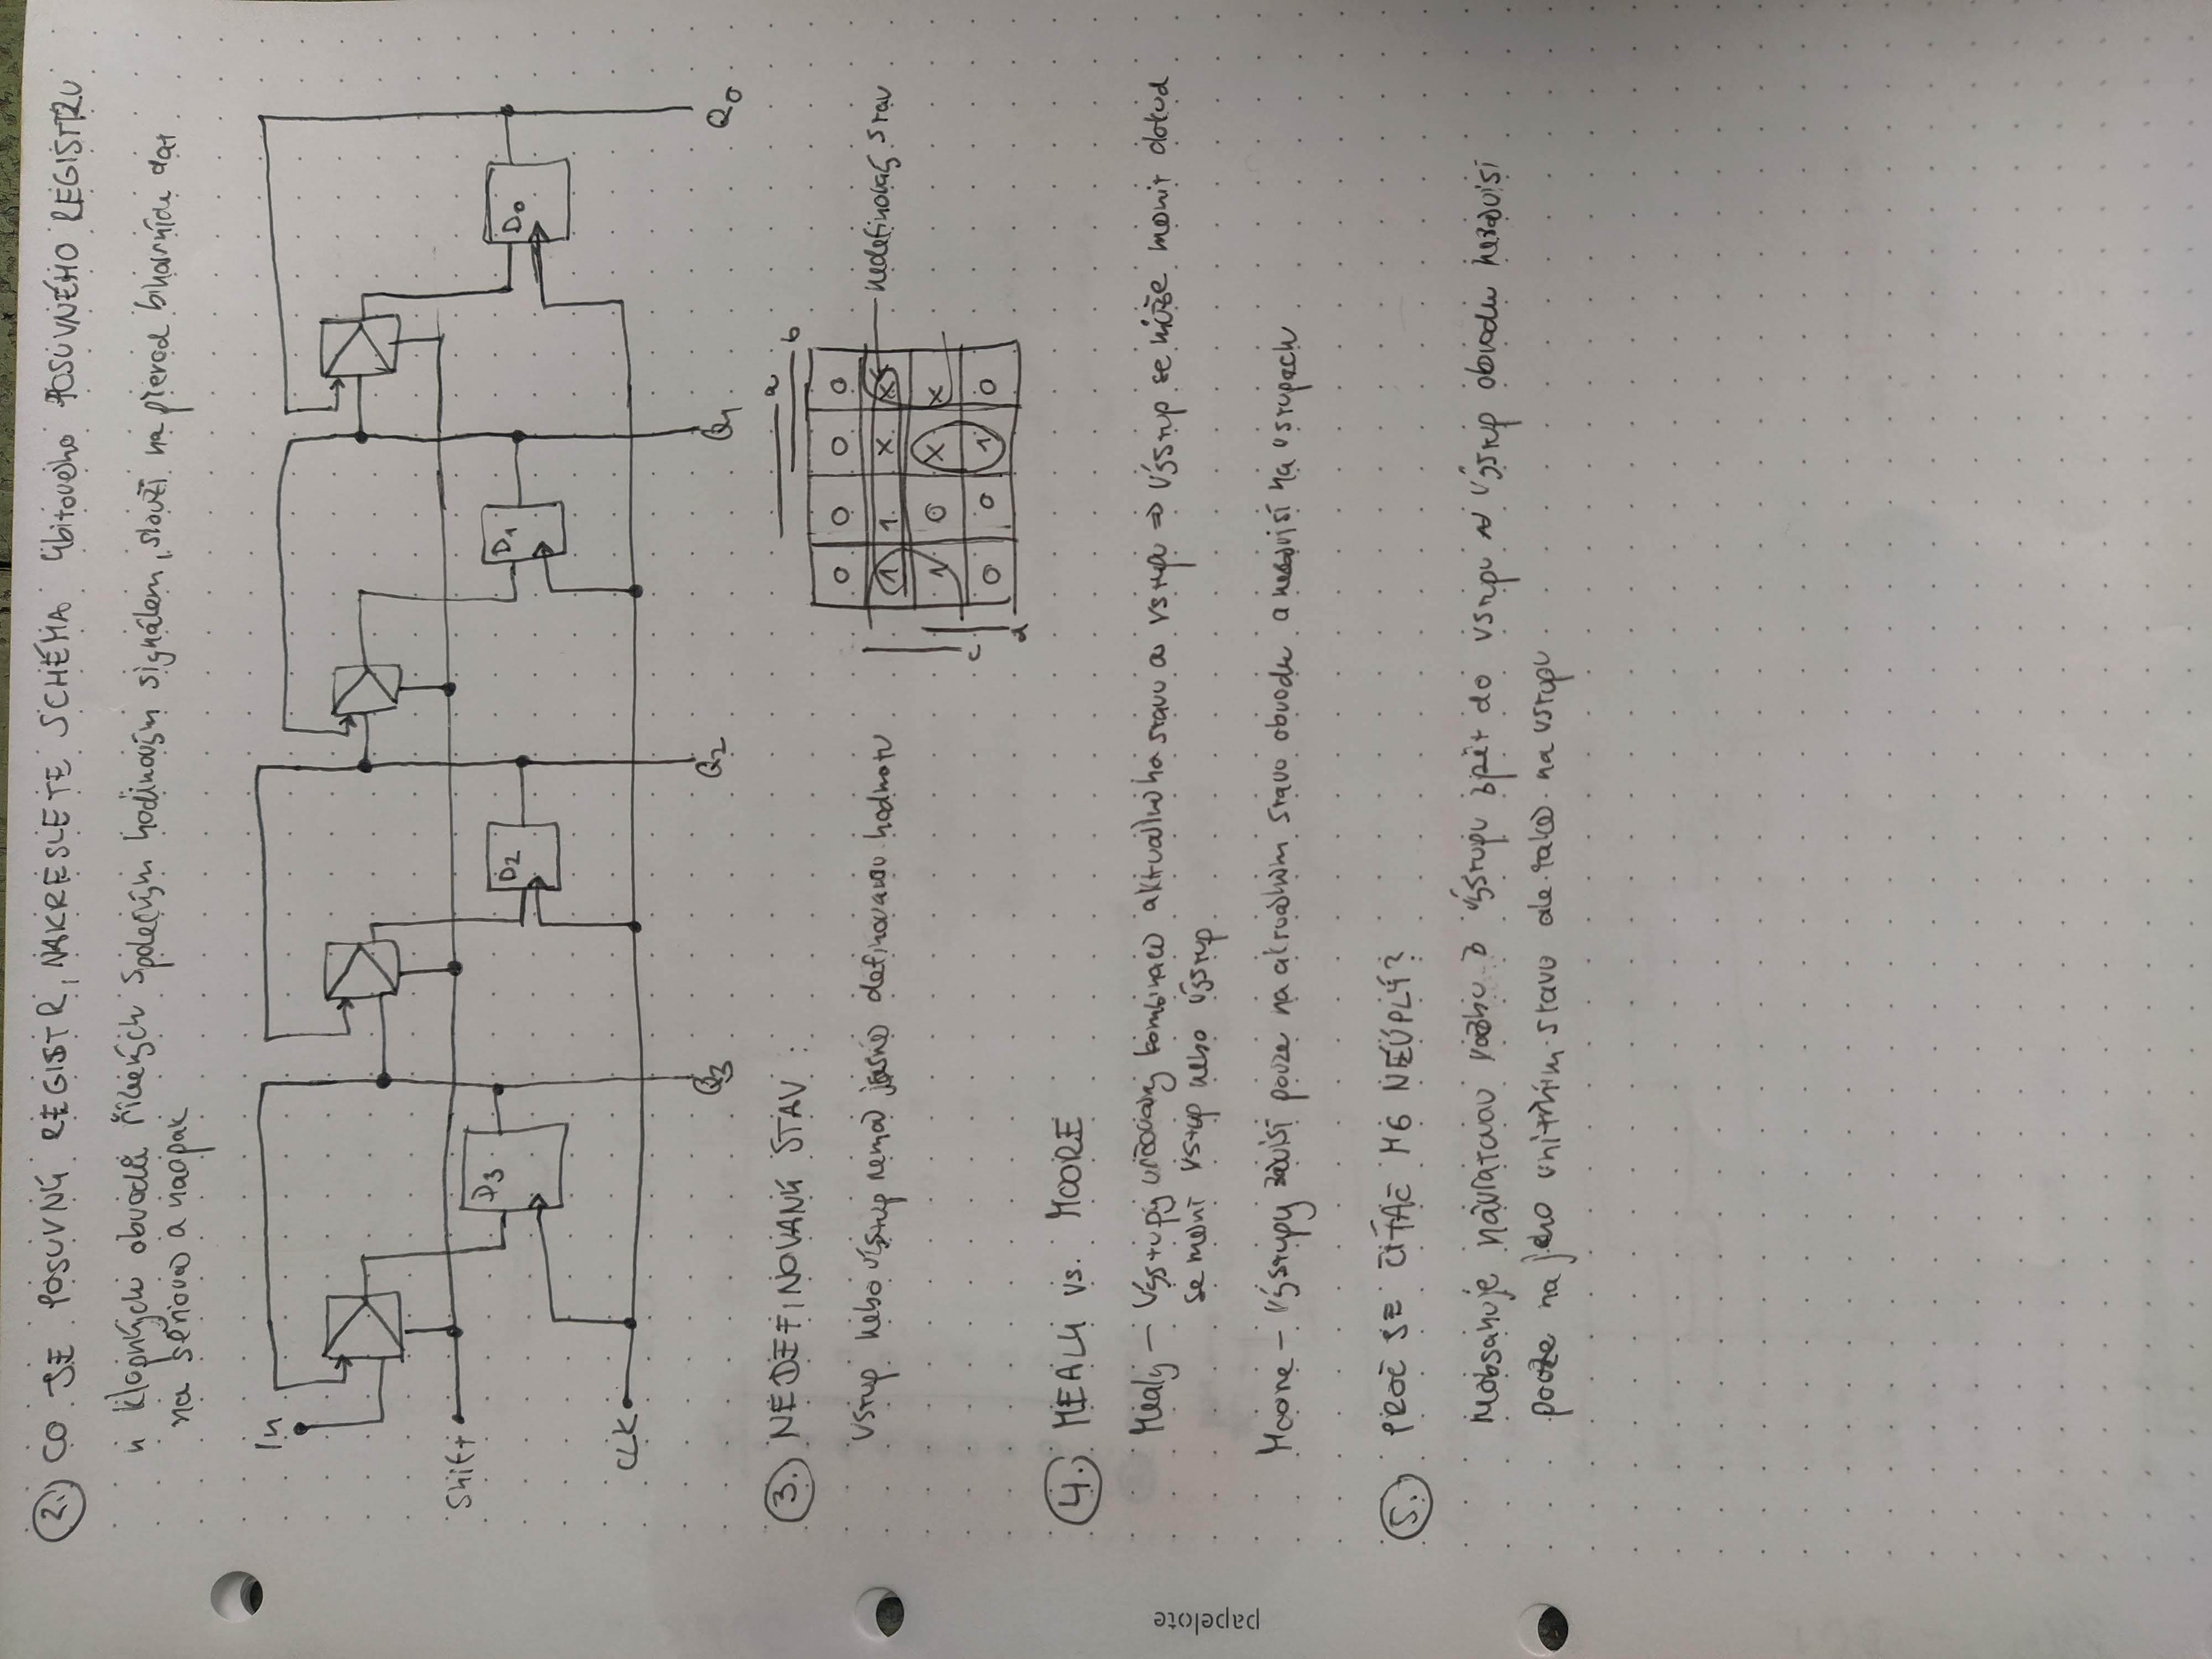 2. CO JE POSUVNÝ REGISTR, NAKRESLETE SCHÉMA 4bitového POSUVNÉHO REGISTRU
n klopných obvodů řízených společným hodinovým signálem, slouží na převod binárních dat
na sériová a naopak
In
Shift
D3
D2
D1
D0
CLK
Q3
Q2
Q1
Q0
3. NEDEFINOVANÝ STAV :
a
b
0 0 0 0
Vstup nebo výstup nemá jasně definovanou hodnotu
1 1 x x
nedefinovaný stav
1 0 x x
c
0 0 1 0
d
4. MEALY vs. MOORE
Mealy – Výstupy určovány kombinací aktuálního stavu a vstupu ⇒ výstup se může měnit dokud
se mění vstup nebo výstup
Moore – Výstupy závisí pouze na aktuálním stavu obvodu a nezávisí na vstupech
papelote
5. PROČ JE ČÍTAČ M6 NEÚPLÝ?
Neobsahuje návratovou vazbu z výstupu zpět do vstupu ~ výstup obvodu nezávisí
pouze na jeho vnitřním stavu ale také na vstupu